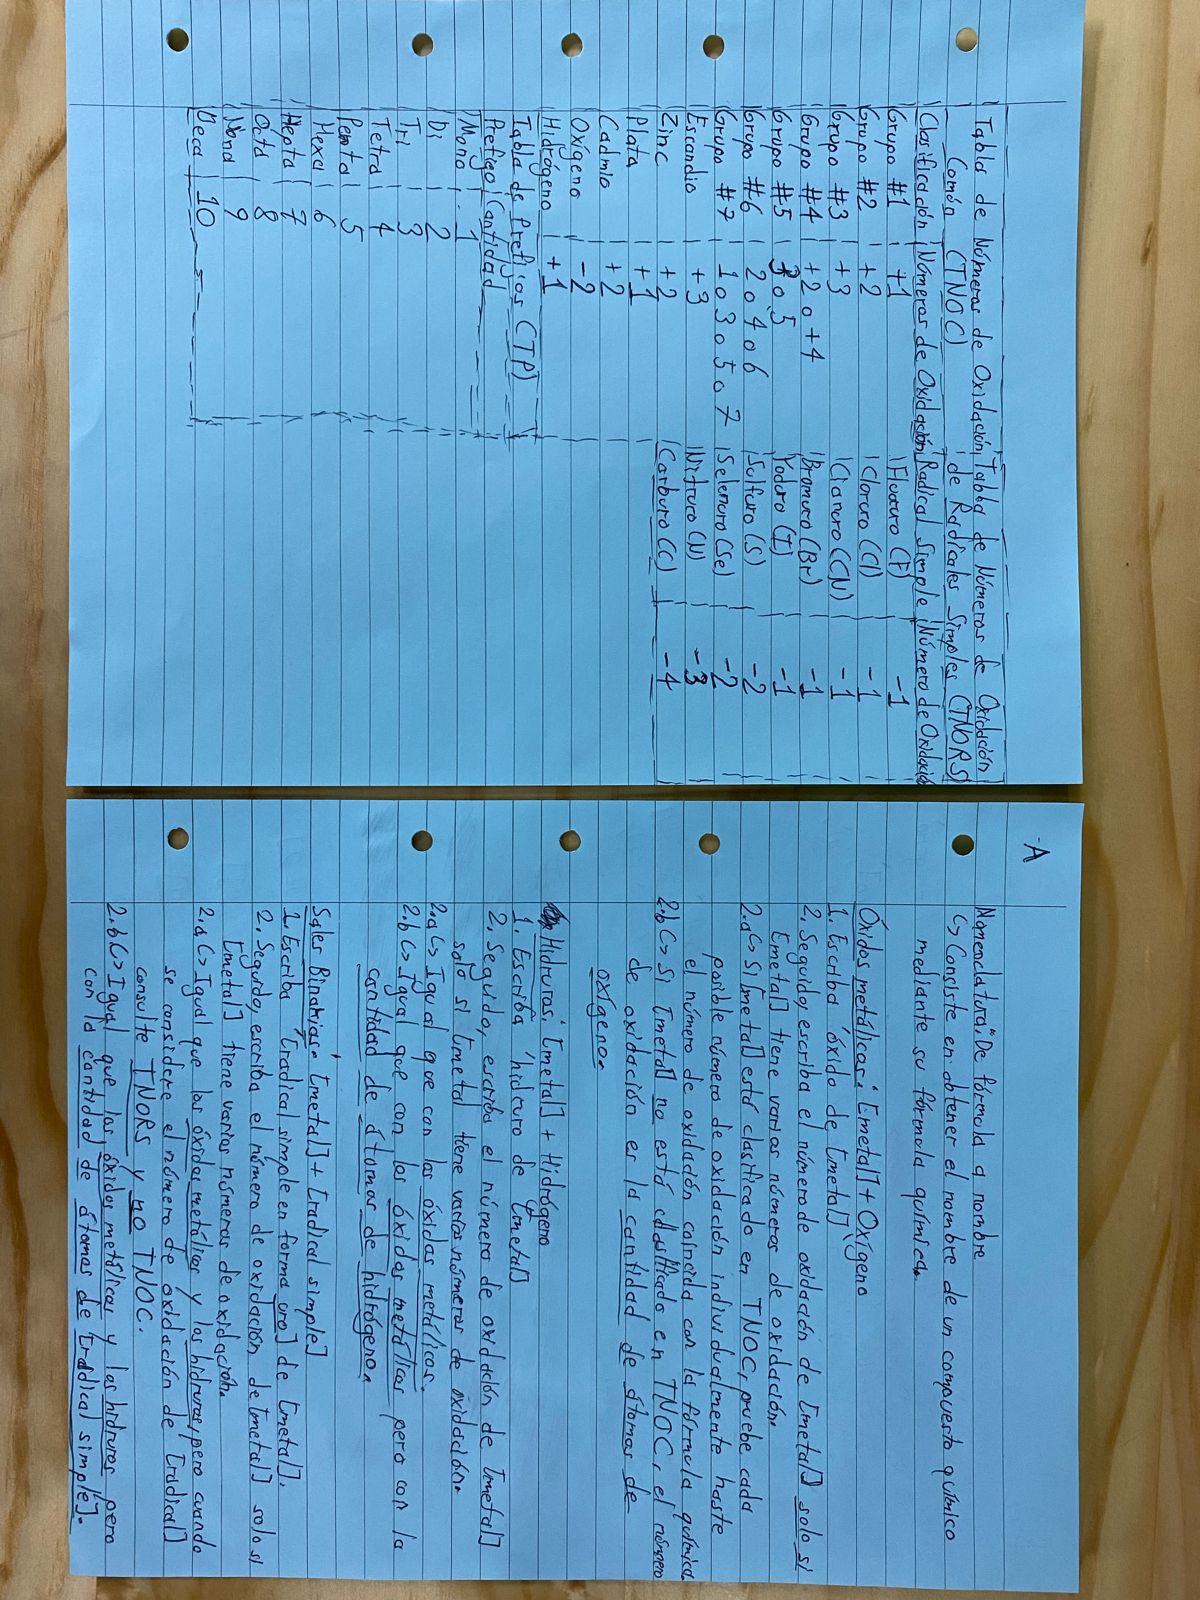 Tabla de Números de Oxidación Tabla de Números de Oxidación
Común (TNOC) de Radicales Simples (TNORS)
Clasificación Números de Oxidación Radical Simple Número de Oxidación
Grupo #1 +1 Fluoruro (F) -1
Grupo #2 +2 Cloruro (Cl) -1
Grupo #3 +3 Cianuro (CN) -1
Grupo #4 +2 o +4 Bromuro (Br) -1
Grupo #5 3 o 5 Yoduro (I) -1
Grupo #6 2 o 4 o 6 Sulfuro (S) -2
Grupo #7 1 o 3 o 5 o 7 Selenuro (Se) -2
Escandio +3 Nitruro (N) -3
Zinc +2 Carburo (C) -4
Plata +1
Cadmio +2
Oxígeno -2
Hidrógeno +1
Tabla de Prefijos (TP)
Prefijo Cantidad
Mono 1
Di 2
Tri 3
Tetra 4
Penta 5
Hexa 6
Hepta 7
Octa 8
Nona 9
Deca 10
A
Nomenclatura: De fórmula a nombre
↳ Consiste en obtener el nombre de un compuesto químico
mediante su fórmula química.
Óxidos metálicos: [metal] + Oxígeno
1. Escriba óxido de [metal]
2. Seguido, escriba el número de oxidación de [metal] solo si
[metal] tiene varios números de oxidación.
2.a ↳ Si [metal] está clasificado en TNOC, pruebe cada
posible número de oxidación individualmente hasta
el número de oxidación coincida con la fórmula química.
2.b ↳ Si [metal] no está clasificado en TNOC, el número
de oxidación es la cantidad de átomos de
oxígeno.
Hidruros: [metal] + Hidrógeno
1. Escriba hidruro de [metal]
2. Seguido, escriba el número de oxidación de [metal]
solo si [metal tiene varios números de oxidación.
2.a ↳ Igual que con los óxidos metálicos.
2.b ↳ Igual que con los óxidos metálicos pero con la
cantidad de átomos de hidrógeno.
Sales Binarias: [metal] + [radical simple]
1. Escriba [radical simple en forma uro] de [metal].
2. Seguido, escriba el número de oxidación de [metal] solo si
[metal] tiene varios números de oxidación.
2.a ↳ Igual que los óxidos metálicos y los hidruros, pero cuando
se considere el número de oxidación de [radical]
consulte TNORS y no TNOC.
2.b ↳ Igual que los óxidos metálicos y los hidruros pero
con la cantidad de átomos de [radical simple].